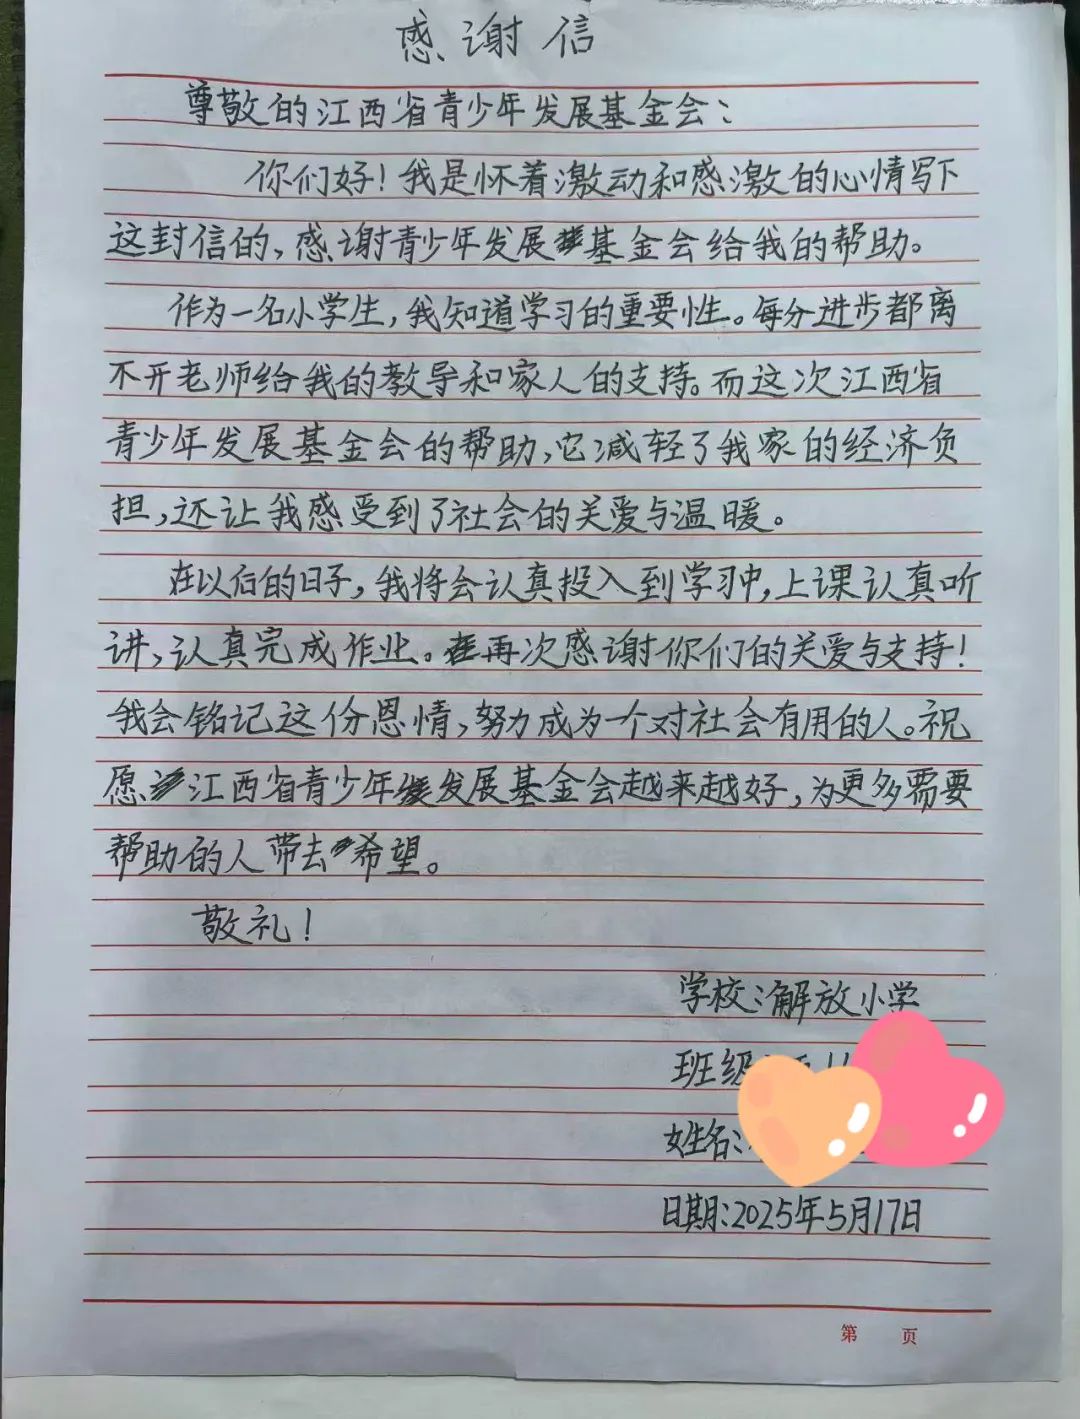 感谢信
尊敬的江西省青少年发展基金会：
你们好！我是怀着激动和感激的心情写下
这封信的，感谢青少年发展基金会给我的帮助。
作为一名小学生，我知道学习的重要性。每分进步都离
不开老师给我的教导和家人的支持。而这次江西省
青少年发展基金会的帮助，它减轻了我家的经济负
担，还让我感受到了社会的关爱与温暖。
在以后的日子，我将会认真投入到学习中，上课认真听
讲，认真完成作业。再次感谢你们的关爱与支持！
我会铭记这份恩情，努力成为一个对社会有用的人。祝
愿江西省青少年发展基金会越来越好，为更多需要
帮助的人带去希望。
敬礼！
学校：解放小学
班级
姓名：
日期：2025年5月17日
第 页